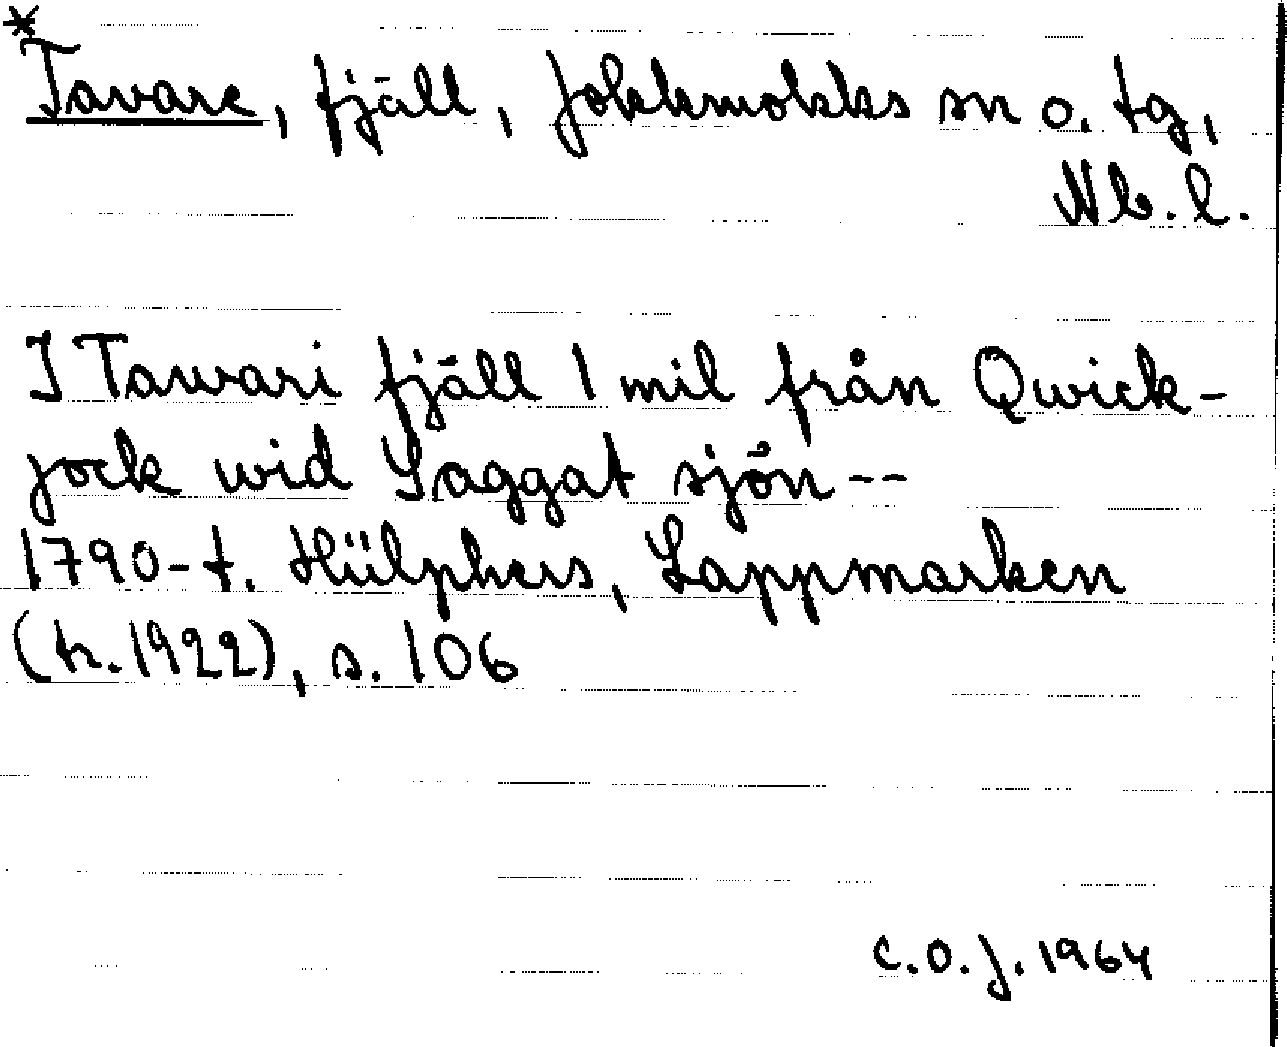 *
Tavare, fjäll, Jokkmokks sn o. tg,
Nb.l.
I Tawari fjäll 1 mil från Qwick-
jock wid Saggat sjön--
1790-t. Hülphers, Lappmarken
(tr. 1922), s. 106
C.O.J. 1964